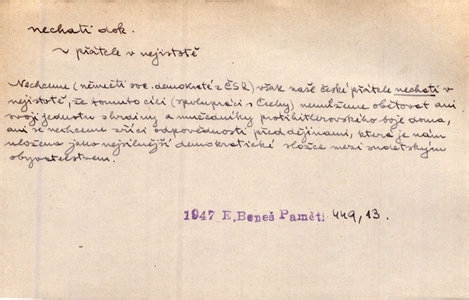 nechati dok.
v přátele v nejistotě
Nechceme (němečtí soc. demokraté z ČSR) však naše české přátele nechati v
nejistotě, že tomuto cíli (spolupráci s Čechy) nemůžeme obětovat ani
svoji jednotu s hrdiny a mučedníky protihitlerovského boje doma,
ani se nechceme zříci odpovědnosti před dějinami, která je nám
uložena jako nejsilnější demokratické složce mezi sudetským
obyvatelstvem.
1947 E. Beneš Paměti 449,13.